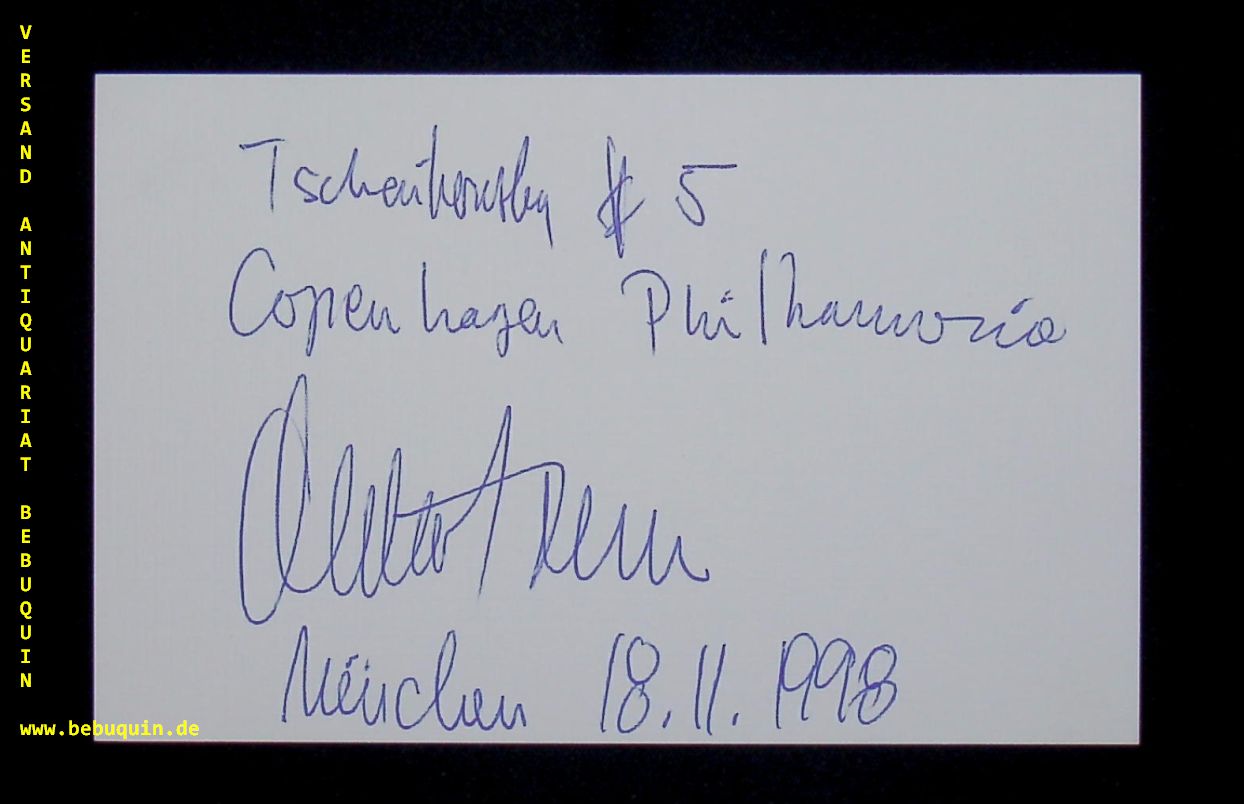 VERSAND ANTIQUARIAT BEBUQUIN
Tschaikowsky # 5
Copenhagen Philharmonia
München 18.11.1998
www.bebuquin.de